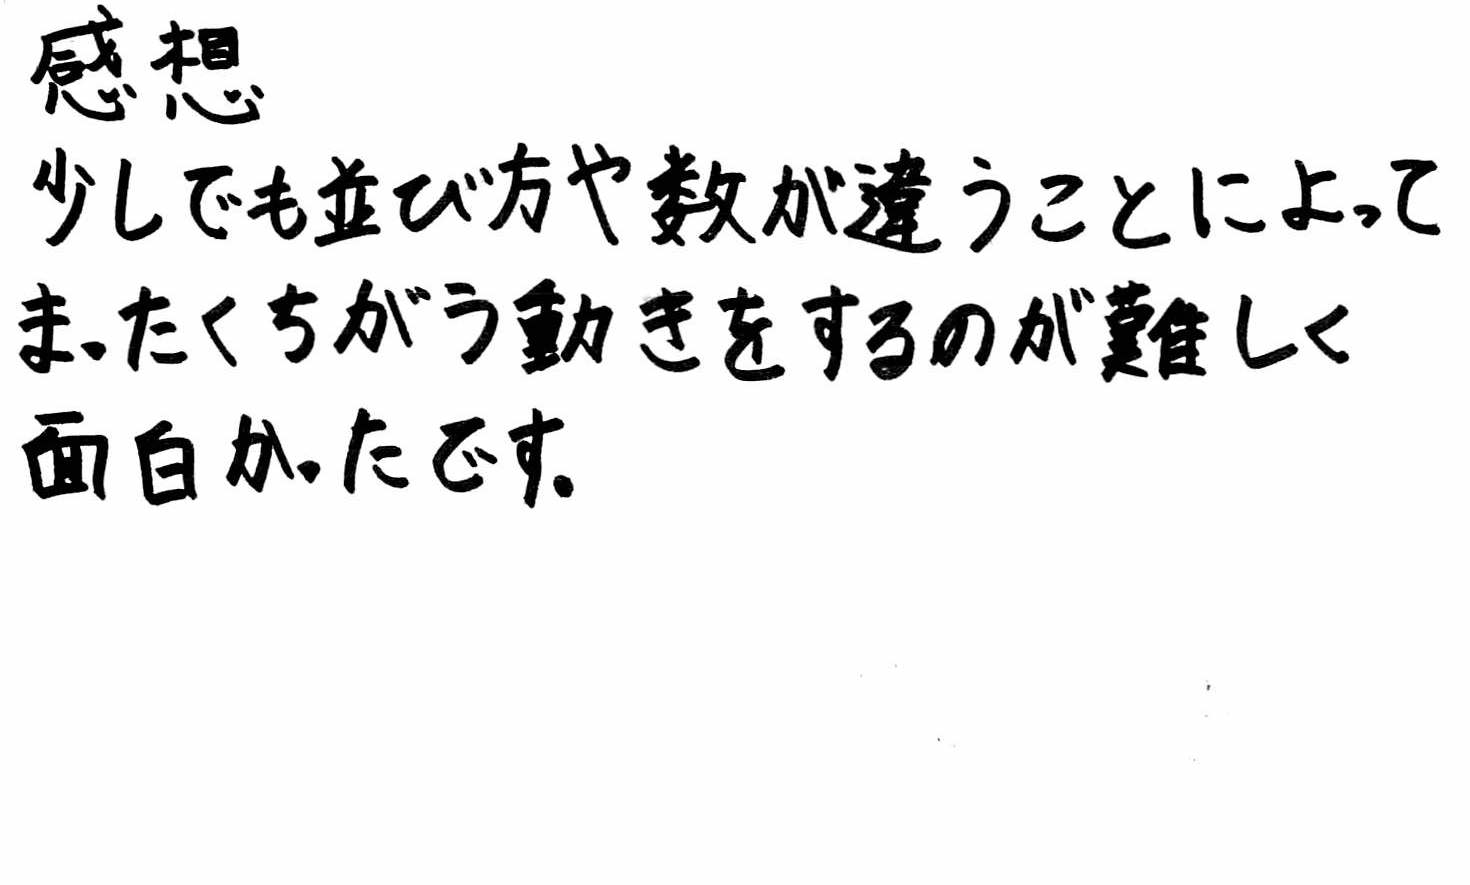 感想
少しでも並び方や数が違うことによって
まったくちがう動きをするのが難しく
面白かったです。